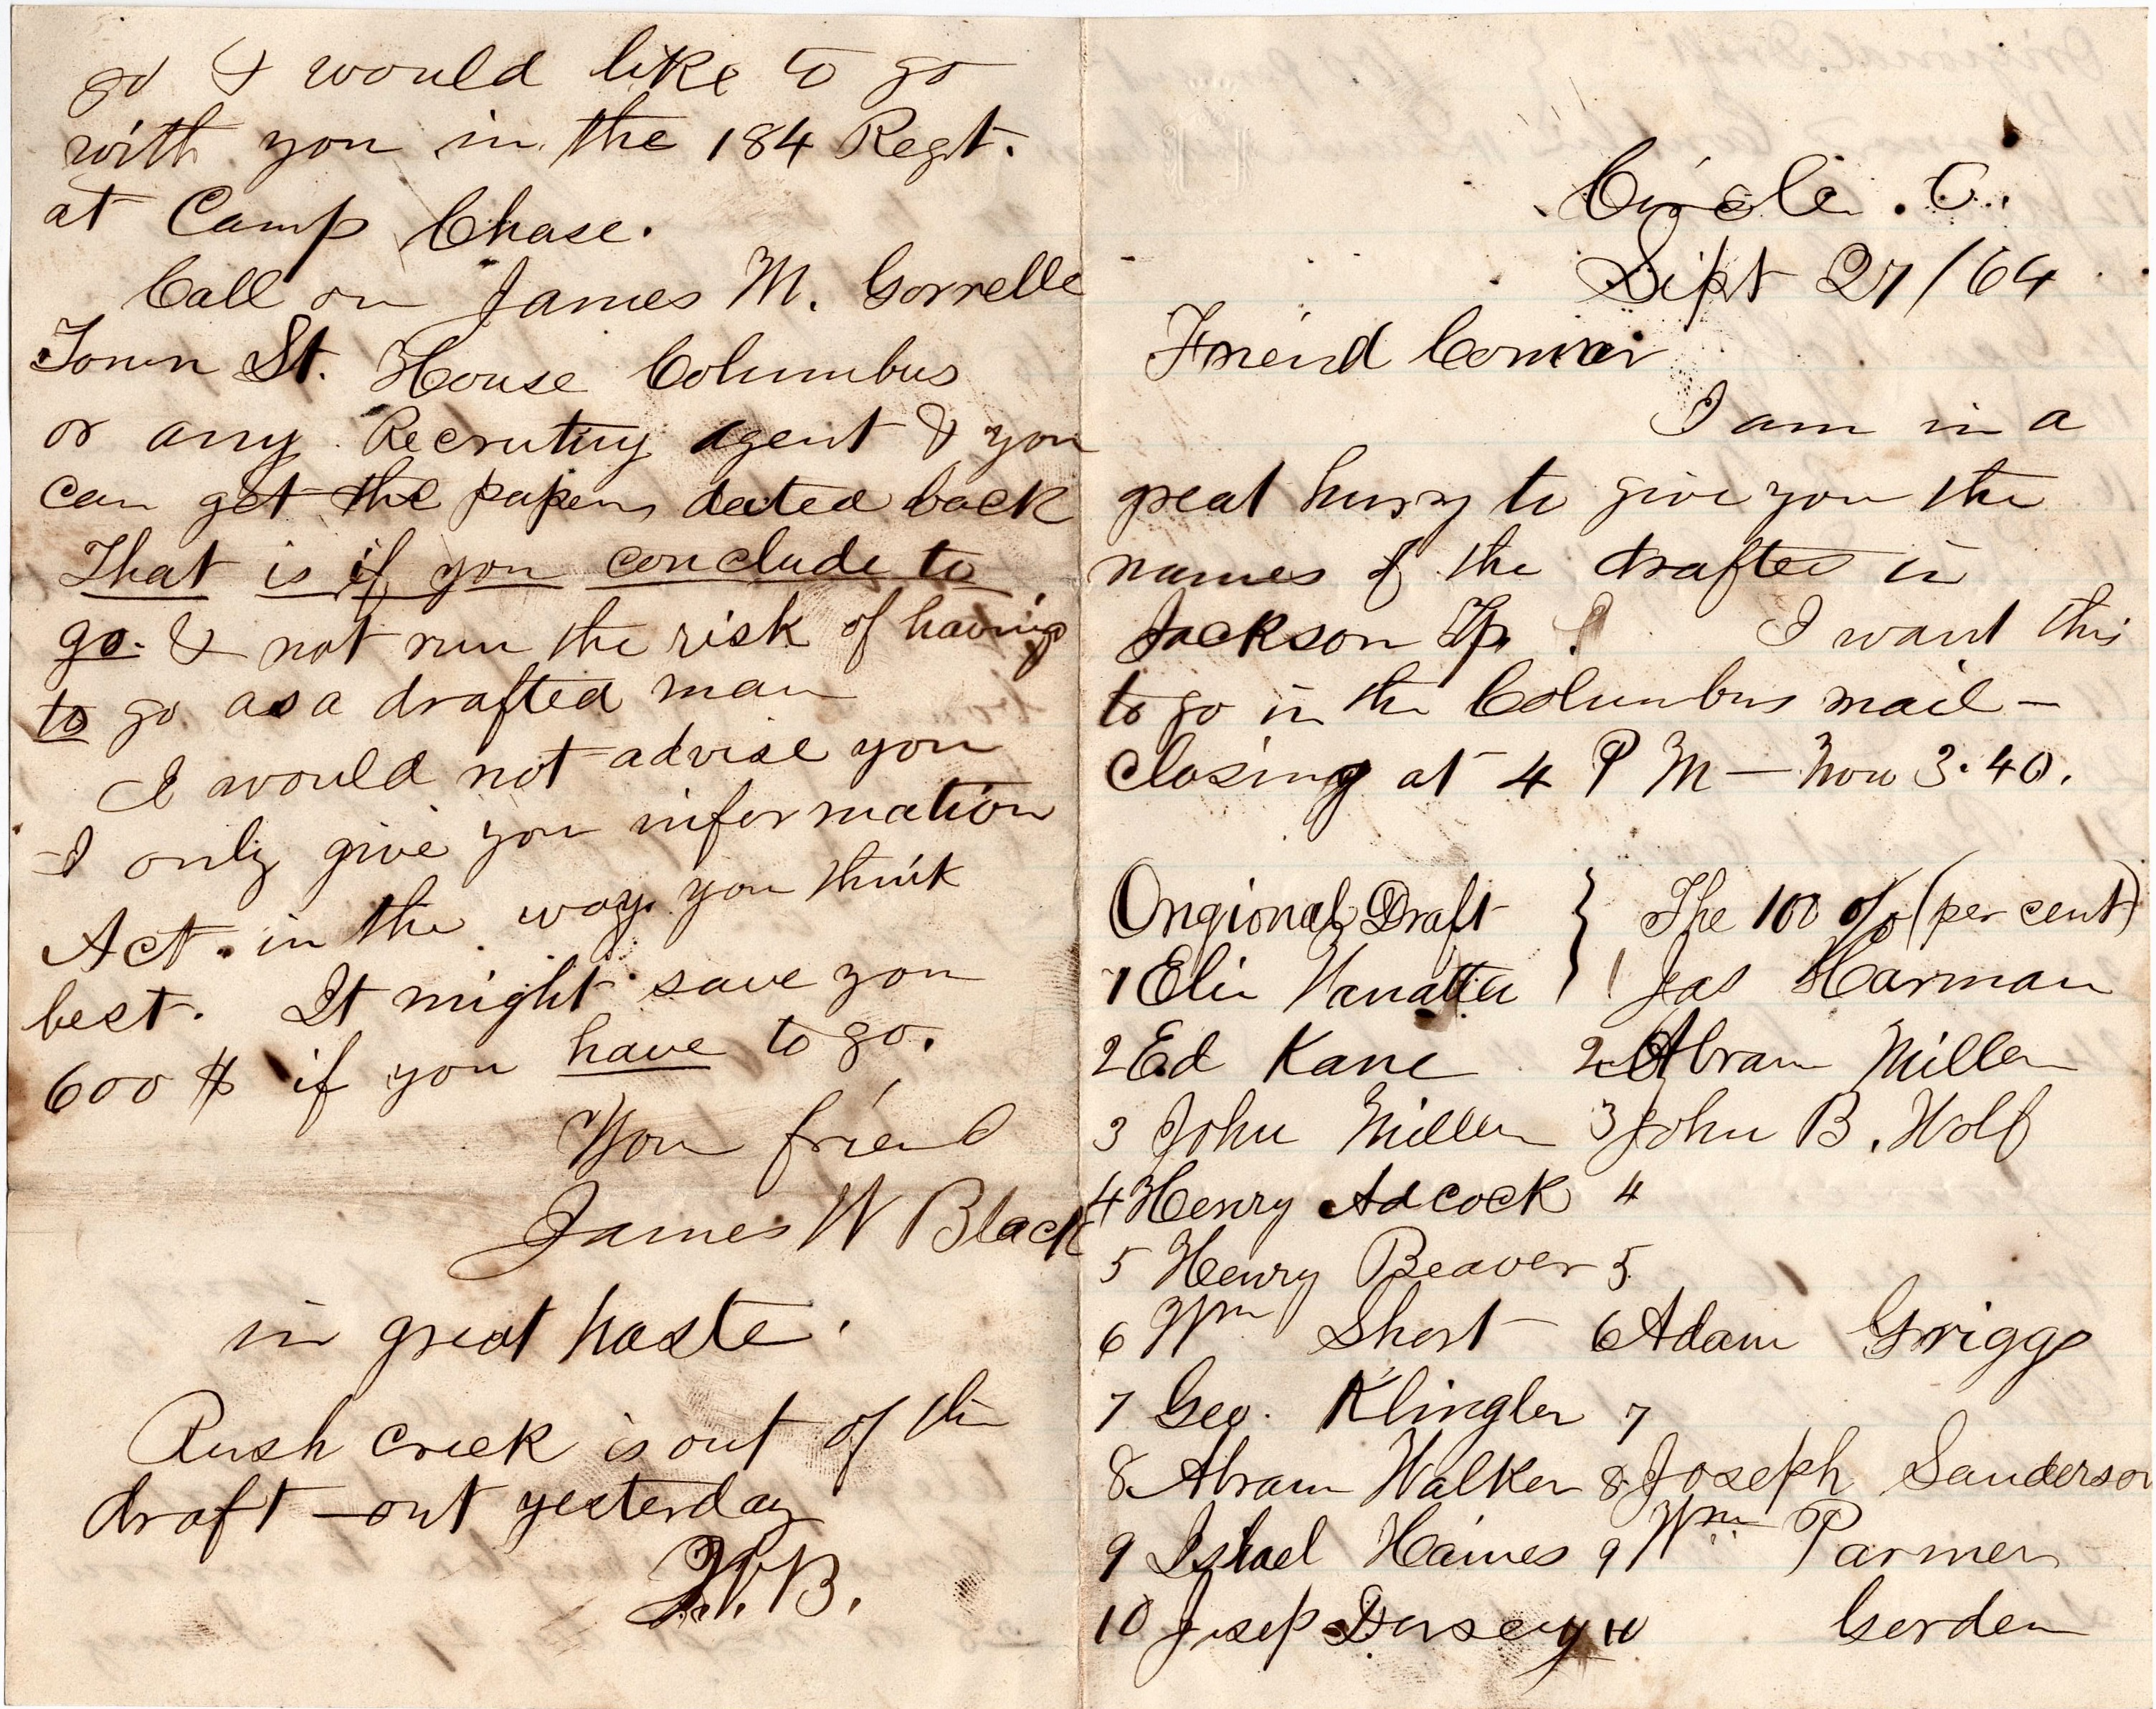 Circle. O.
Sept 27/64
Friend Comer
I am in a
great hurry to give you the
names of the drafted in
Jackson Tp. I want this
to go in the Columbus mail —
closing at 4 P M — Now 3.40.
Origional Draft } The 100 % (per cent)
1 Eli Vanatta 1 Jas Harman
2 Ed Kane 2 Abram Miller
3 John Miller 3 John B. Wolf
4 Henry Adcock 4
5 Henry Beaver 5
6 Wm Short 6 Adam Griggs
7 Geo. Klingler 7
8 Abram Walker 8 Joseph Sanderson
9 Isheal Haines 9 Wm Parmer
10 Josep Dorsey 10 Gorden
go I would like to go
with you in the 184 Regt.
at Camp Chase.
Call on James M. Gorrelle
Town St. House Columbus
or any Recruting agent & you
can get the papers dated back
That is if you conclude to
go. & not run the risk of having
to go as a drafted man
I would not advise you
I only give you information
Act. in the way you think
best. It might save you
600 $ if you have to go.
Your friend
James W Black
in great haste.
Rush creek is out of the
draft — out yesterday
W. B.